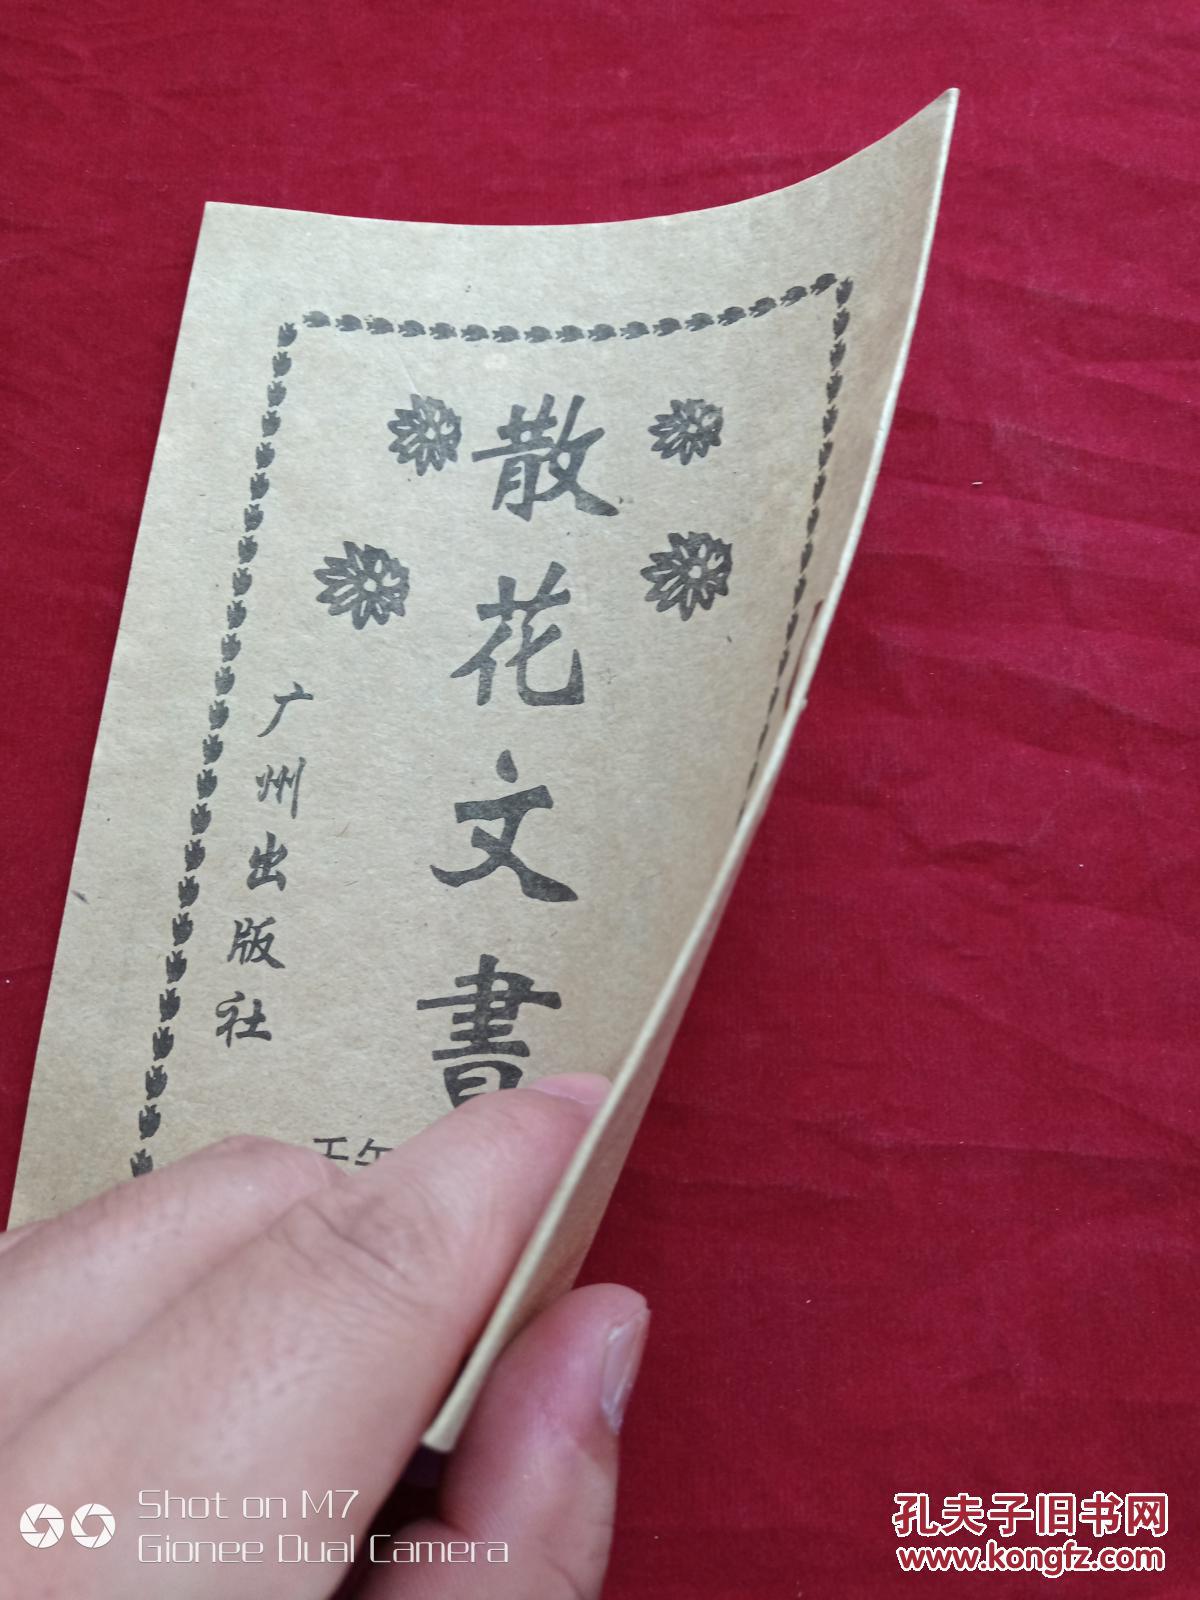 散花文書
广州出版社
Shot on M7
Gionee Dual Camera
孔夫子旧书网
www.kongfz.com